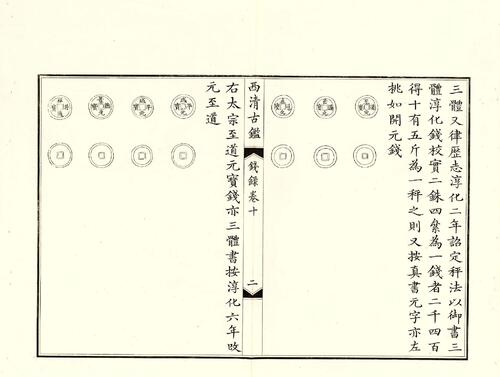 三體又律歷志淳化二年詔定秤法以御書三
體淳化錢校實二銖四絫為一錢者二千四百
得十有五斤為一秤之則又按真書元字亦左
挑如開元錢
西清古鑑
錢錄卷十
二
右太宗至道元寶錢亦三體書按淳化六年改
元至道